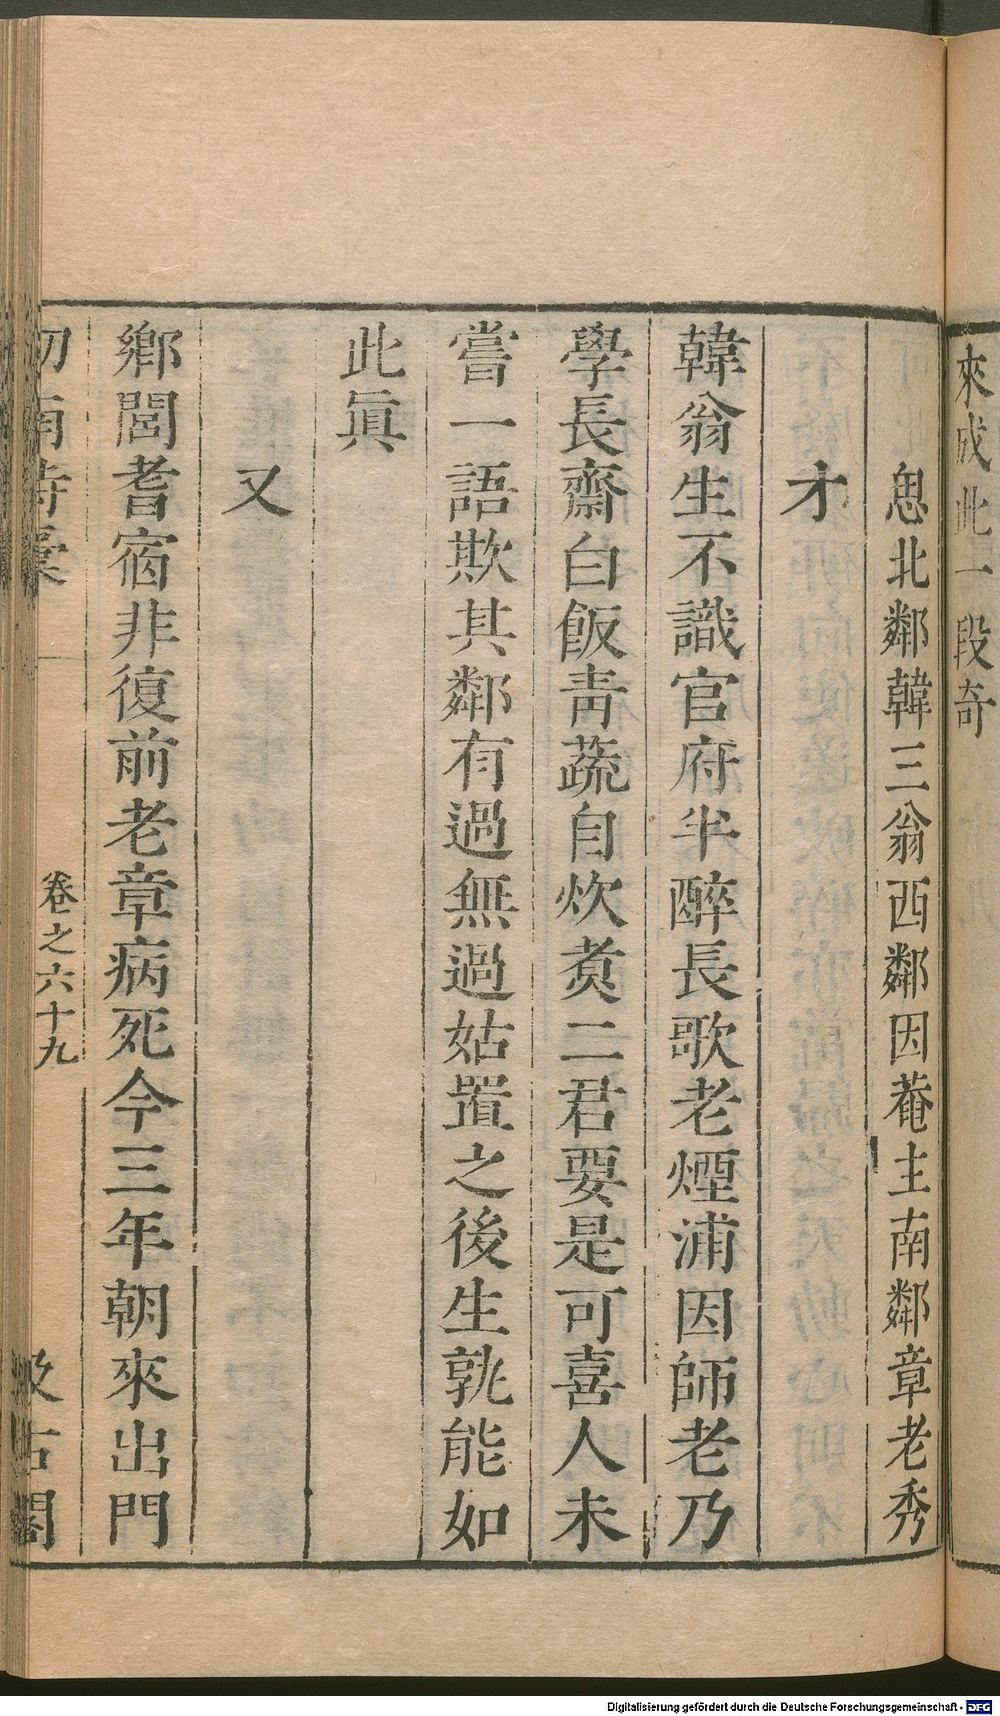 來成此一段奇
思北鄰韓三翁西鄰因菴主南鄰章老秀
才
韓翁生不識官府半醉長歌老煙浦因師老乃
學長齋白飯青蔬自炊煑二君要是可喜人未
嘗一語欺其鄰有過無過姑置之後生孰能如
此眞
又
鄉閭耆宿非復前老章病死今三年朝來出門
劒南詩稾 卷之六十九 汲古閣
Digitalisierung gefördert durch die Deutsche Forschungsgemeinschaft - DFG